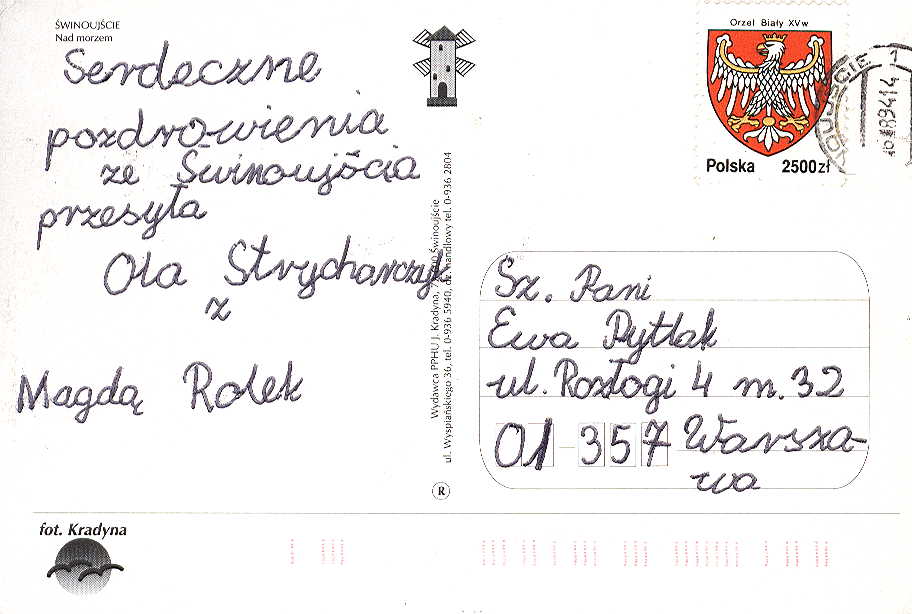 ŚWINOUJŚCIE
Nad morzem
Serdeczne
pozdrowienia
ze Świnoujścia
przesyła
Ola Strycharczyk
z
Magdą Rolek
Wydawca PPHU J. Kradyna, Świnoujście
ul. Wyspiańskiego 36, tel. 0-936 5940, dz. handlowy tel. 0-936 2804
R
Orzeł Biały XV w
Polska 2500zł
Sz. Pani
Ewa Pytlak
ul. Rozłogi 4 m. 32
01-357 Warsza-
wa
fot. Kradyna